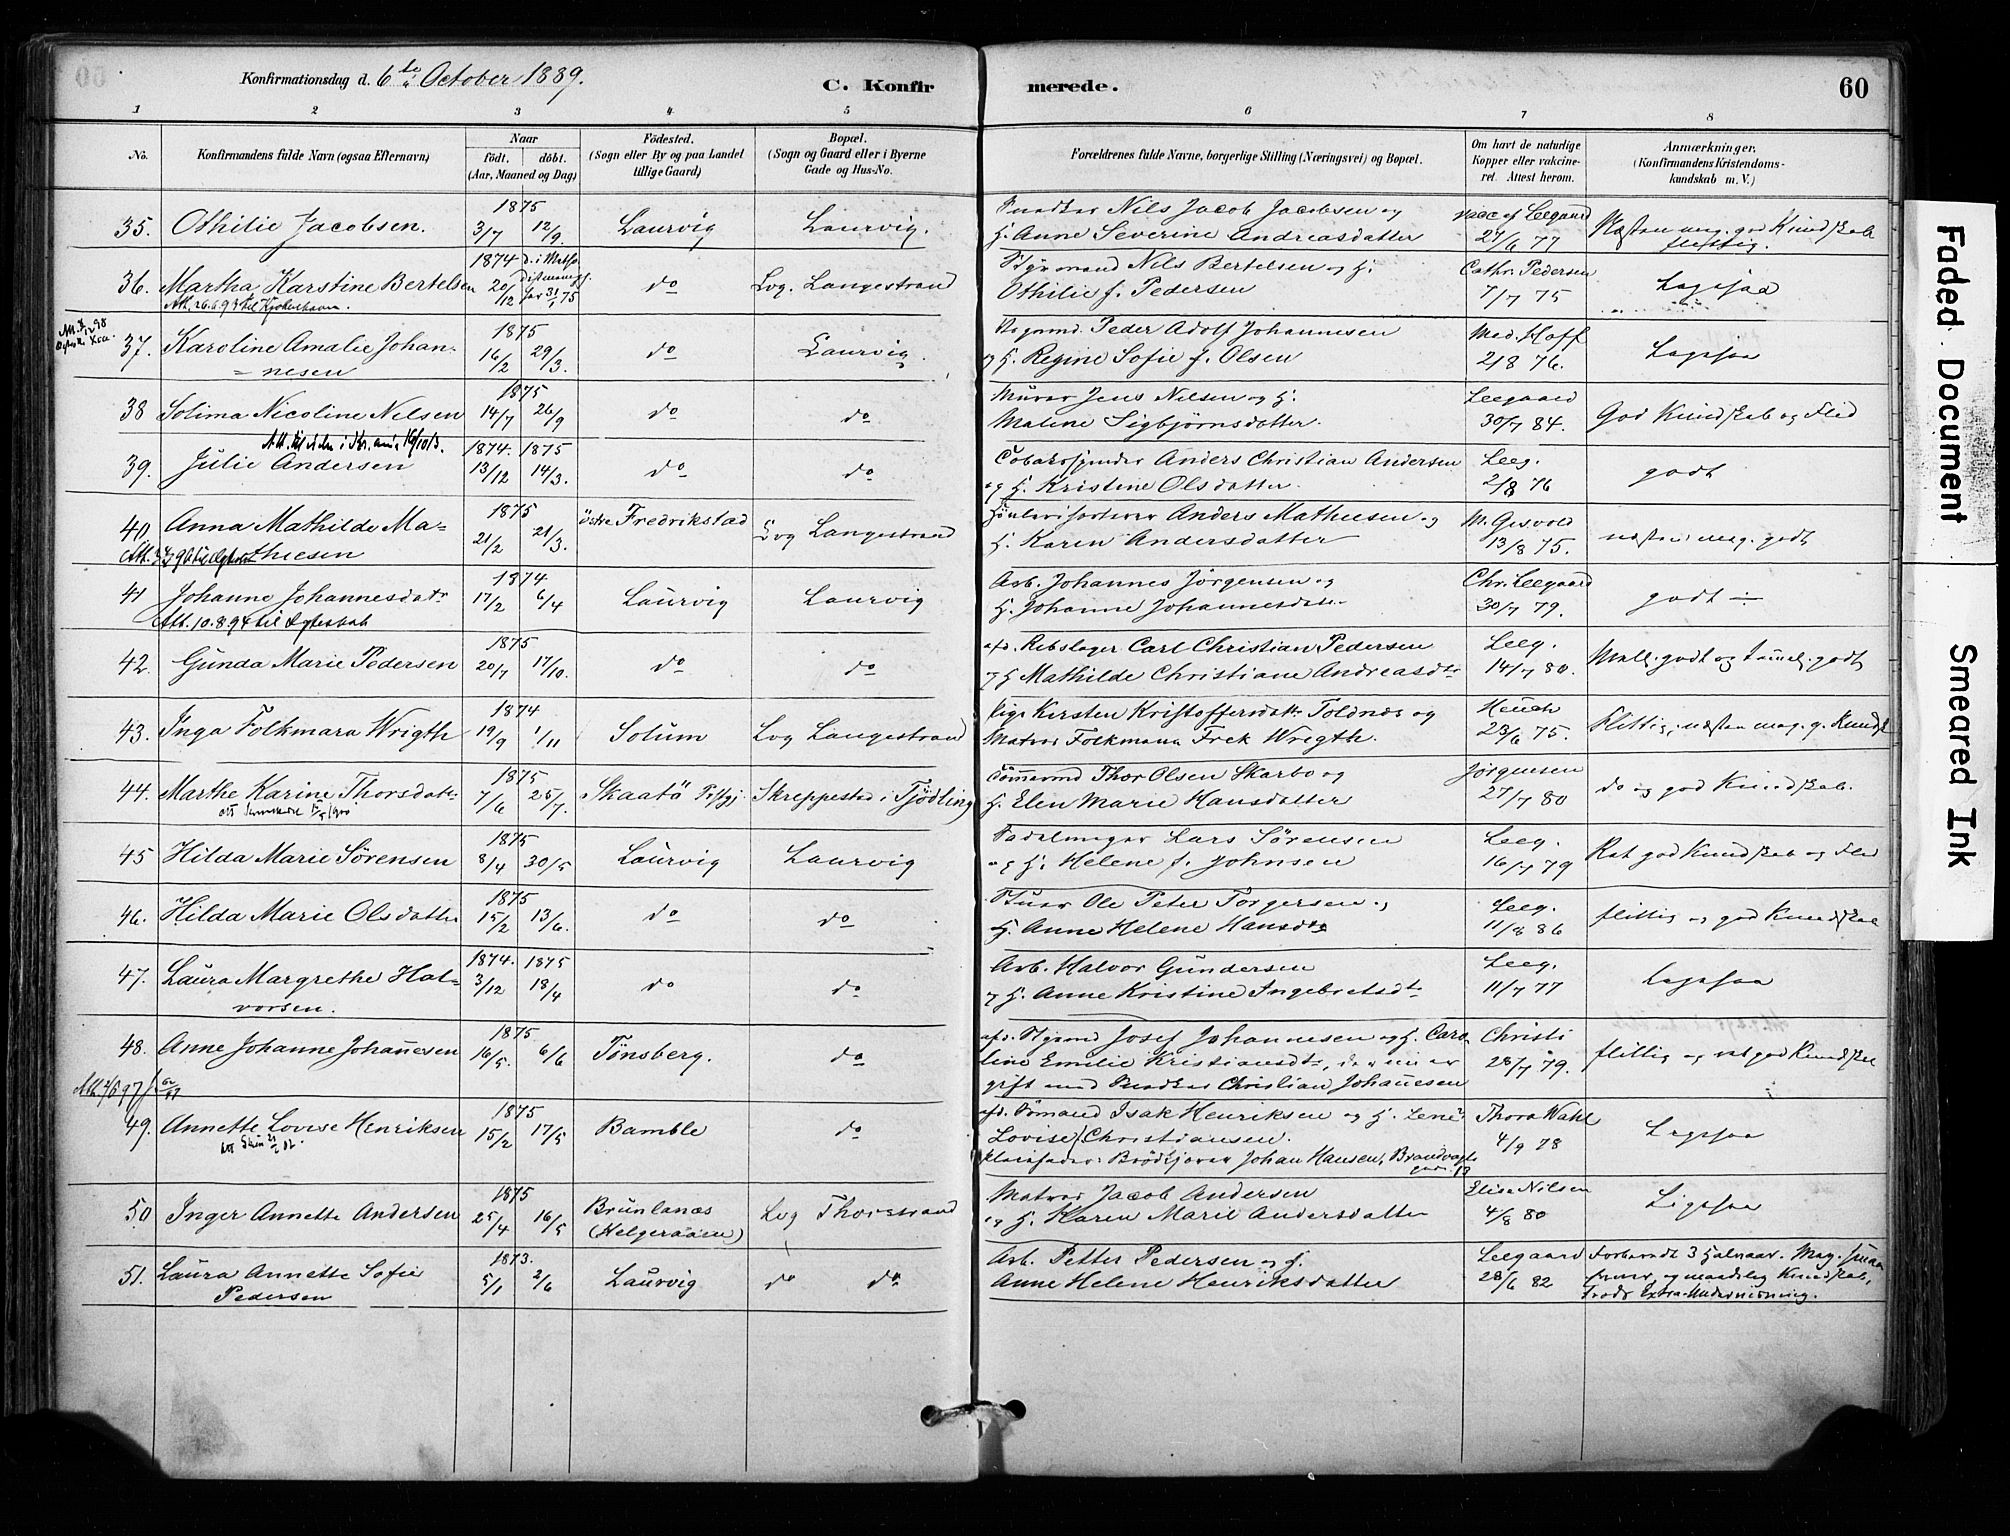 Konfirmationsdag d. 6te October 1889.
C. Konfirmerede.
60
1 2 3 4 5 6 7 8
No.
Konfirmandens fulde Navn (ogsaa Efternavn)
Naar
født. døbt.
(Aar, Maaned og Dag)
Födested.
(Sogn eller By og paa Landet tillige Gaard)
Bopæl.
(Sogn og Gaard eller i Byerne Gade og Hus-No.
Forældrenes fulde Navne, borgerlige Stilling (Næringsvei) og Bopæl.
Om havt de naturlige Kopper eller vakcineret. Attest herom.
Anmærkninger,
(Konfirmandens Kristendomskundskab m. V.)
35. Othilie Jacobsen. 1875 3/7 12/9. Laurvig Laurvig. Nils Jacob Jacobsen og
H. Anne Severine Andreasdatter vacc af Leegaard 27/6 77 Næsten mg. god Kundskab flittig.
36. Martha Karstine Bertelsen 1874 20/12 31/1 75 do Lvg. Langestrand Styrmand Nils Bertelsen og H.
Othilie f. Pedersen Cathr. Pedersen 7/7 75 Ligesaa
Att. 26.6.93 til Kjøbenhavn.
37. Karoline Amalie Johannesen 1875 16/2 29/3. do Laurvig. Peder Adolf Johannesen
og H. Regine Sofie f. Olsen Mad. Hoff 2/8 76. Ligesaa
38 Solima Nicoline Nilsen 1875 14/7 26/9 do do Murer Jens Nilsen og H.
Maline Sigbjørnsdatter. Leegaard 30/7 84. God Kundskab og Flid
39. Julie Andersen 1874. 1875 13/12 14/3. do do Tobaksspinder Anders Christian Andersen
og H. Kristine Olsdatter. Leeg. 2/8 76 godt
40. Anna Mathilde Mathiesen 1875 21/2 21/3. Østre Fredrikstad Lvg Langestrand Anders Mathiesen og
H. Karen Andersdatter M. Gisvold 13/8 75. næsten mg. godt
41 Johanne Johannesdatr 1874 17/2 6/4 Laurvig Laurvig Arb. Johannes Jørgensen og
H. Johanne Johannesdatr Chr. Leegaard 30/7 79. godt
Att. 10.8.94 til Ægteskab
42. Gunda Marie Pedersen 1875 20/7 17/10. do do afd. Rebslager Carl Christian Pedersen
og H Mathilde Christiane Andreasdtr Leeg. 14/7 80. Mell. godt og temel. godt
43. Inga Folkmara Wrigth 1874 19/9 1/11 Solum Lvg Langestrand Pige Kirsten Kristoffersdatr Toldnæs og
Matros Folkmann Frek Wrigth. Heuch 23/6 75. Flittig, næsten mg. g. Kundsk
44. Marthe Karine Thorsdatr 1875 7/6 25/7. Skaatö Skreppestad i Tjödling Tömmermd Thor Olsen Skarbo og
H. Elen Marie Hansdatter Jørgensen 27/7 80 do og god Kundskab.
45 Hilda Marie Sørensen 1875 8/4 30/5 Laurvig Laurvig Sadelmager Lars Sørensen
og H. Helene f. Johnsen Leeg. 16/7 79 Ret god Kundskab og Flid
46. Hilda Marie Olsdatter 1875 15/2 13/6. do do Stuer Ole Peter Torgersen og
H. Anne Helene Hansdtr Leeg. 11/8 86 flittig og god Kundskab
47. Laura Margrethe Halvorsen. 1874. 1875 3/12 18/4 do do Arb. Halvor Gundersen
og H. Anne Kristine Ingebretsdtr Leeg. 11/7 77 Ligesaa
48. Anne Johanne Johannesen 1875 16/5. 6/6 Tønsberg. do afd. Styrmd Josef Johannesen og H. Caroline Emilie Kristiansdtr, der nu er
gift med Christian Johannesen Christi 28/7 79. flittig og ret god Kundskab
49. Annette Lovise Henriksen 1875 15/2 17/5 Bamble do afd. Sömand Isak Henriksen og H. Lene
Lovise Christiansen.
Pleiefader: Brödkjører Johan Hansen, Brandvagts
gade 13 Thora Wahl 4/9 78 Ligesaa
50 Inger Annette Andersen 1875 25/4 16/5 Brunlanæs (Helgeraaen) Lvg Thorstrand Matros Jacob Andersen
og H. Karen Marie Andersdatter Elise Nilsen 4/8 80 Ligesaa
51. Laura Annette Sofie Pedersen 1873. 5/1 2/6 Laurvig do do Arb. Petter Pedersen og H.
Anne Helene Henriksdatter Leegaard 28/6 82 Forberedt 3 Halvaar. Mag. smaa
Evner og maadelig Kundskab,
trods Extra-Undervisning.
Faded Document
Smeared Ink